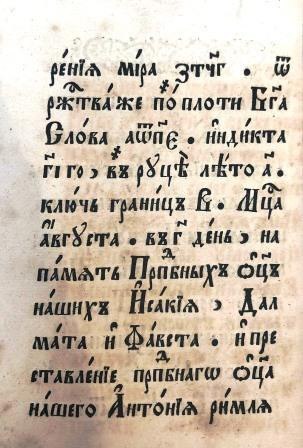 ре́нїѧ мі́ра ҂зтч҃г . ѿ
рж҃тва́же по́плоти Бг҃а
Сло́ва ҂аѿпе҃ . и҆нди́кта
г҃і го , въ руцѣ̀ лѣ́то а҃ .
клю́чь грани́цъ В . Мц҃а
а҆́ѵгуста . въ г҃ де́нь , на
па́мѧть Прпⷣбныхъ ѻ҆ц҃ъ
на́шихъ И҆са́кїѧ , Дал
ма́та и҆ Фа́ѵста . и҆ пре
ставле́нїе прпⷣбнагѡ ѻ҆ц҃а
на́шего А҆нто́нїѧ ри́млѧ